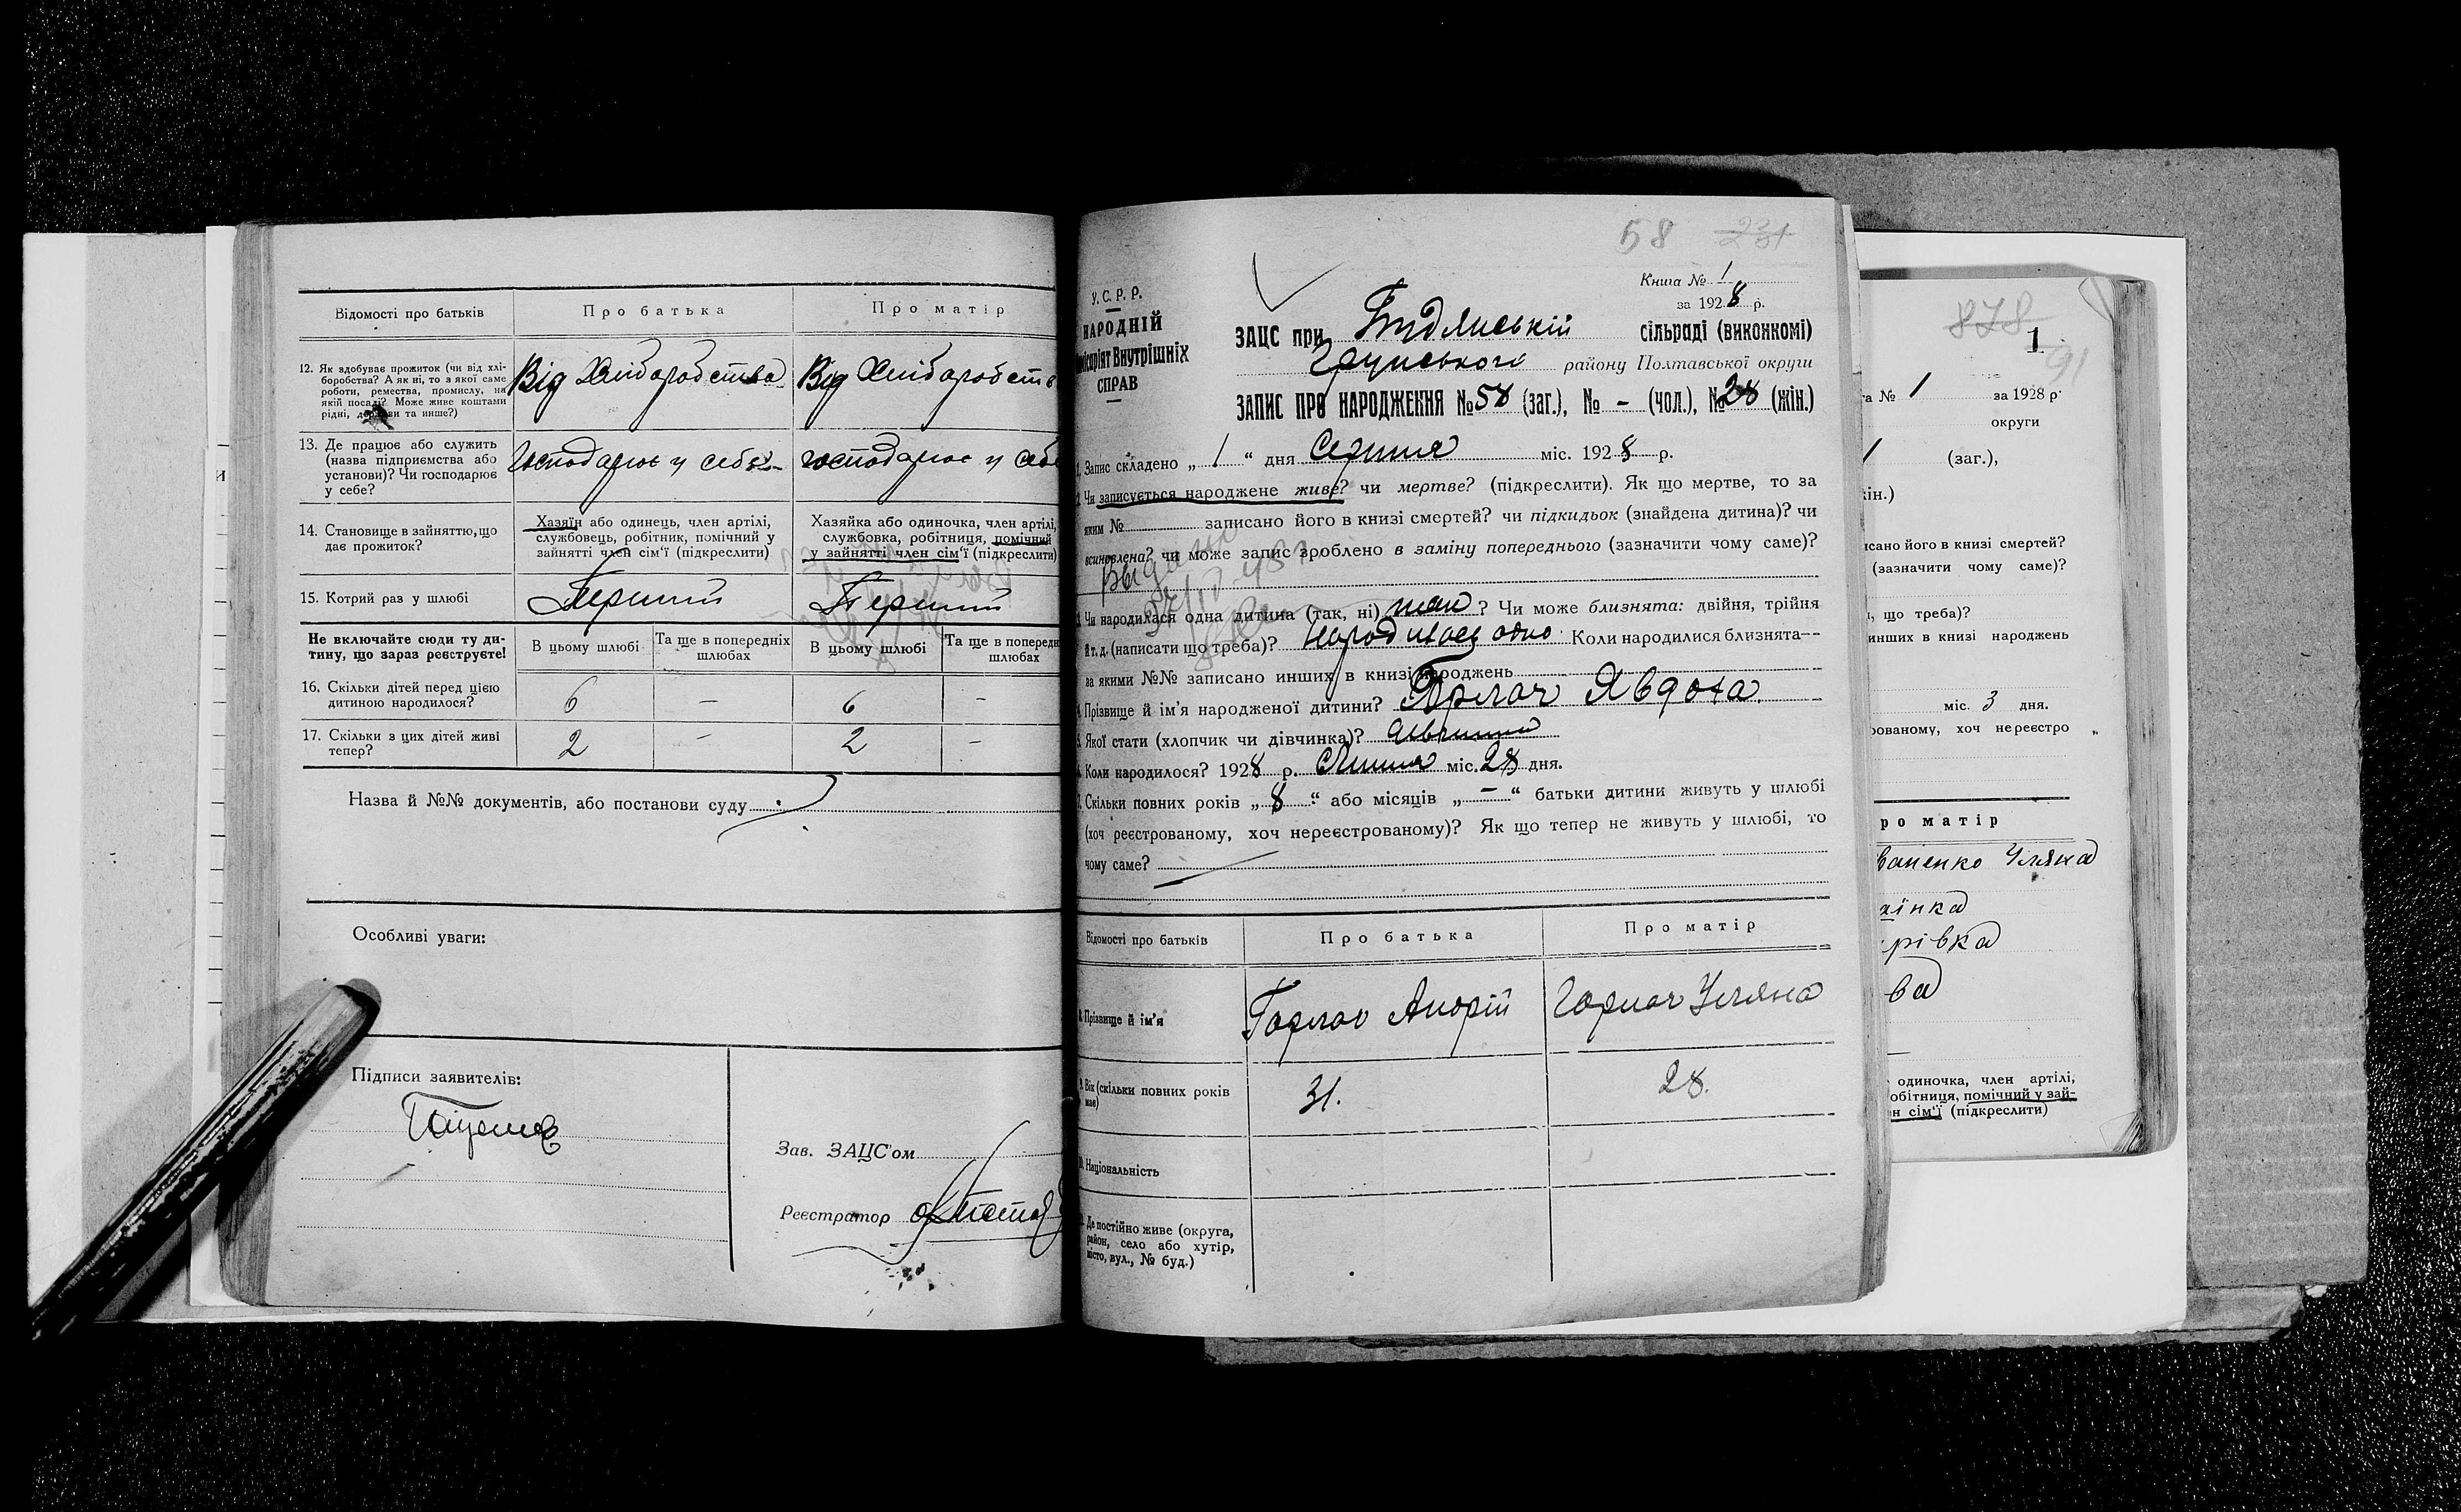 Відомості про батьків
Про батька
Про матір
12. Як здобуває прожиток (чи від хлі-
боробства? А як ні, то з якої саме
роботи, ремества, промислу, на
якій посаді? Може живе коштами
рідні, держави та инше?)
Від Хліборобства
Від Хліборобств
13. Де працює або служить
(назва підприємства або
установи)? Чи господарює
у себе?
Господарює у себе
господарює у себе
14. Становище в зайняттю, що
дає прожиток?
Хазяїн або одинець, член артілі,
службовець, робітник, помічний у
зайнятті член сім'ї (підкреслити)
Хазяйка або одиночка, член артілі,
службовка, робітниця, помічний
у зайнятті член сім'ї (підкреслити)
15. Котрий раз у шлюбі
Перший
Перший
Не включайте сюди ту ди-
тину, що зараз реєструєте!
В цьому шлюбі
Та ще в попередніх
шлюбах
В цьому шлюбі
Та ще в поперед
шлюбах
16. Скільки дітей перед цією
дитиною народилося?
6 – 6 –
17. Скільки з цих дітей живі
тепер?
2 – 2 –
Назва й №№ документів, або постанови суду
Особливі уваги:
Підписи заявителів:
Зав. ЗАЦС'ом
Реєстратор
58 231
У.С.Р.Р.
НАРОДНІЙ
Комісаріят Внутрішніх
СПРАВ
Книга № 1
за 1928 р.
ЗАЦС при сільраді (виконкомі)
району Полтавської округи
ЗАПИС ПРО НАРОДЖЕННЯ № 58 (заг.), № - (чол.), № 28 (жін.)
1. Запис складено „ 1 “ дня Серпня міс. 1928 р.
2. Чи записується народжене живе? чи мертве? (підкреслити). Як що мертве, то за
яким № записано його в книзі смертей? чи підкидьок (знайдена дитина)? чи
всиновлена? чи може запис зроблено в заміну попереднього (зазначити чому саме)?
Чи народилася одна дитина (так, ні) так ? Чи може близнята: двійня, трійня
й т. д. (написати що треба)? Народилось одно Коли народилися близнята—
за якими №№ записано инших в книзі народжень
Прізвище й ім'я народженої дитини? Горлач Явдоха.
Якої стати (хлопчик чи дівчинка)? дівчинка
Коли народилося? 1928 р. Липня міс. 28 дня.
Скільки повних років „ 8 “ або місяців „ – “ батьки дитини живуть у шлюбі
(хоч реєстрованому, хоч нереєстрованому)? Як що тепер не живуть у шлюбі, то
чому саме?
Відомості про батьків
Про батька
Про матір
8. Прізвище й ім'я
Горлач Андрій
Горлач Уляна
9. Вік (скільки повних років
має)
31.
28.
10. Національність
Де постійно живе (округа,
район, село або хутір,
місто, вул., № буд.)
878
1
91
а № 1 за 1928 р.
округи
(заг.),
ін.)
исано його в книзі смертей?
(зазначити чому саме)?
, що треба)?
инших в книзі народжень
міс. 3 дня.
рованому, хоч нереєстро
ро матір
ваненко Уляна
аїнка
рівка
ва
одиночка, член артілі,
обітниця, помічний у зай-
н сім'ї (підкреслити)